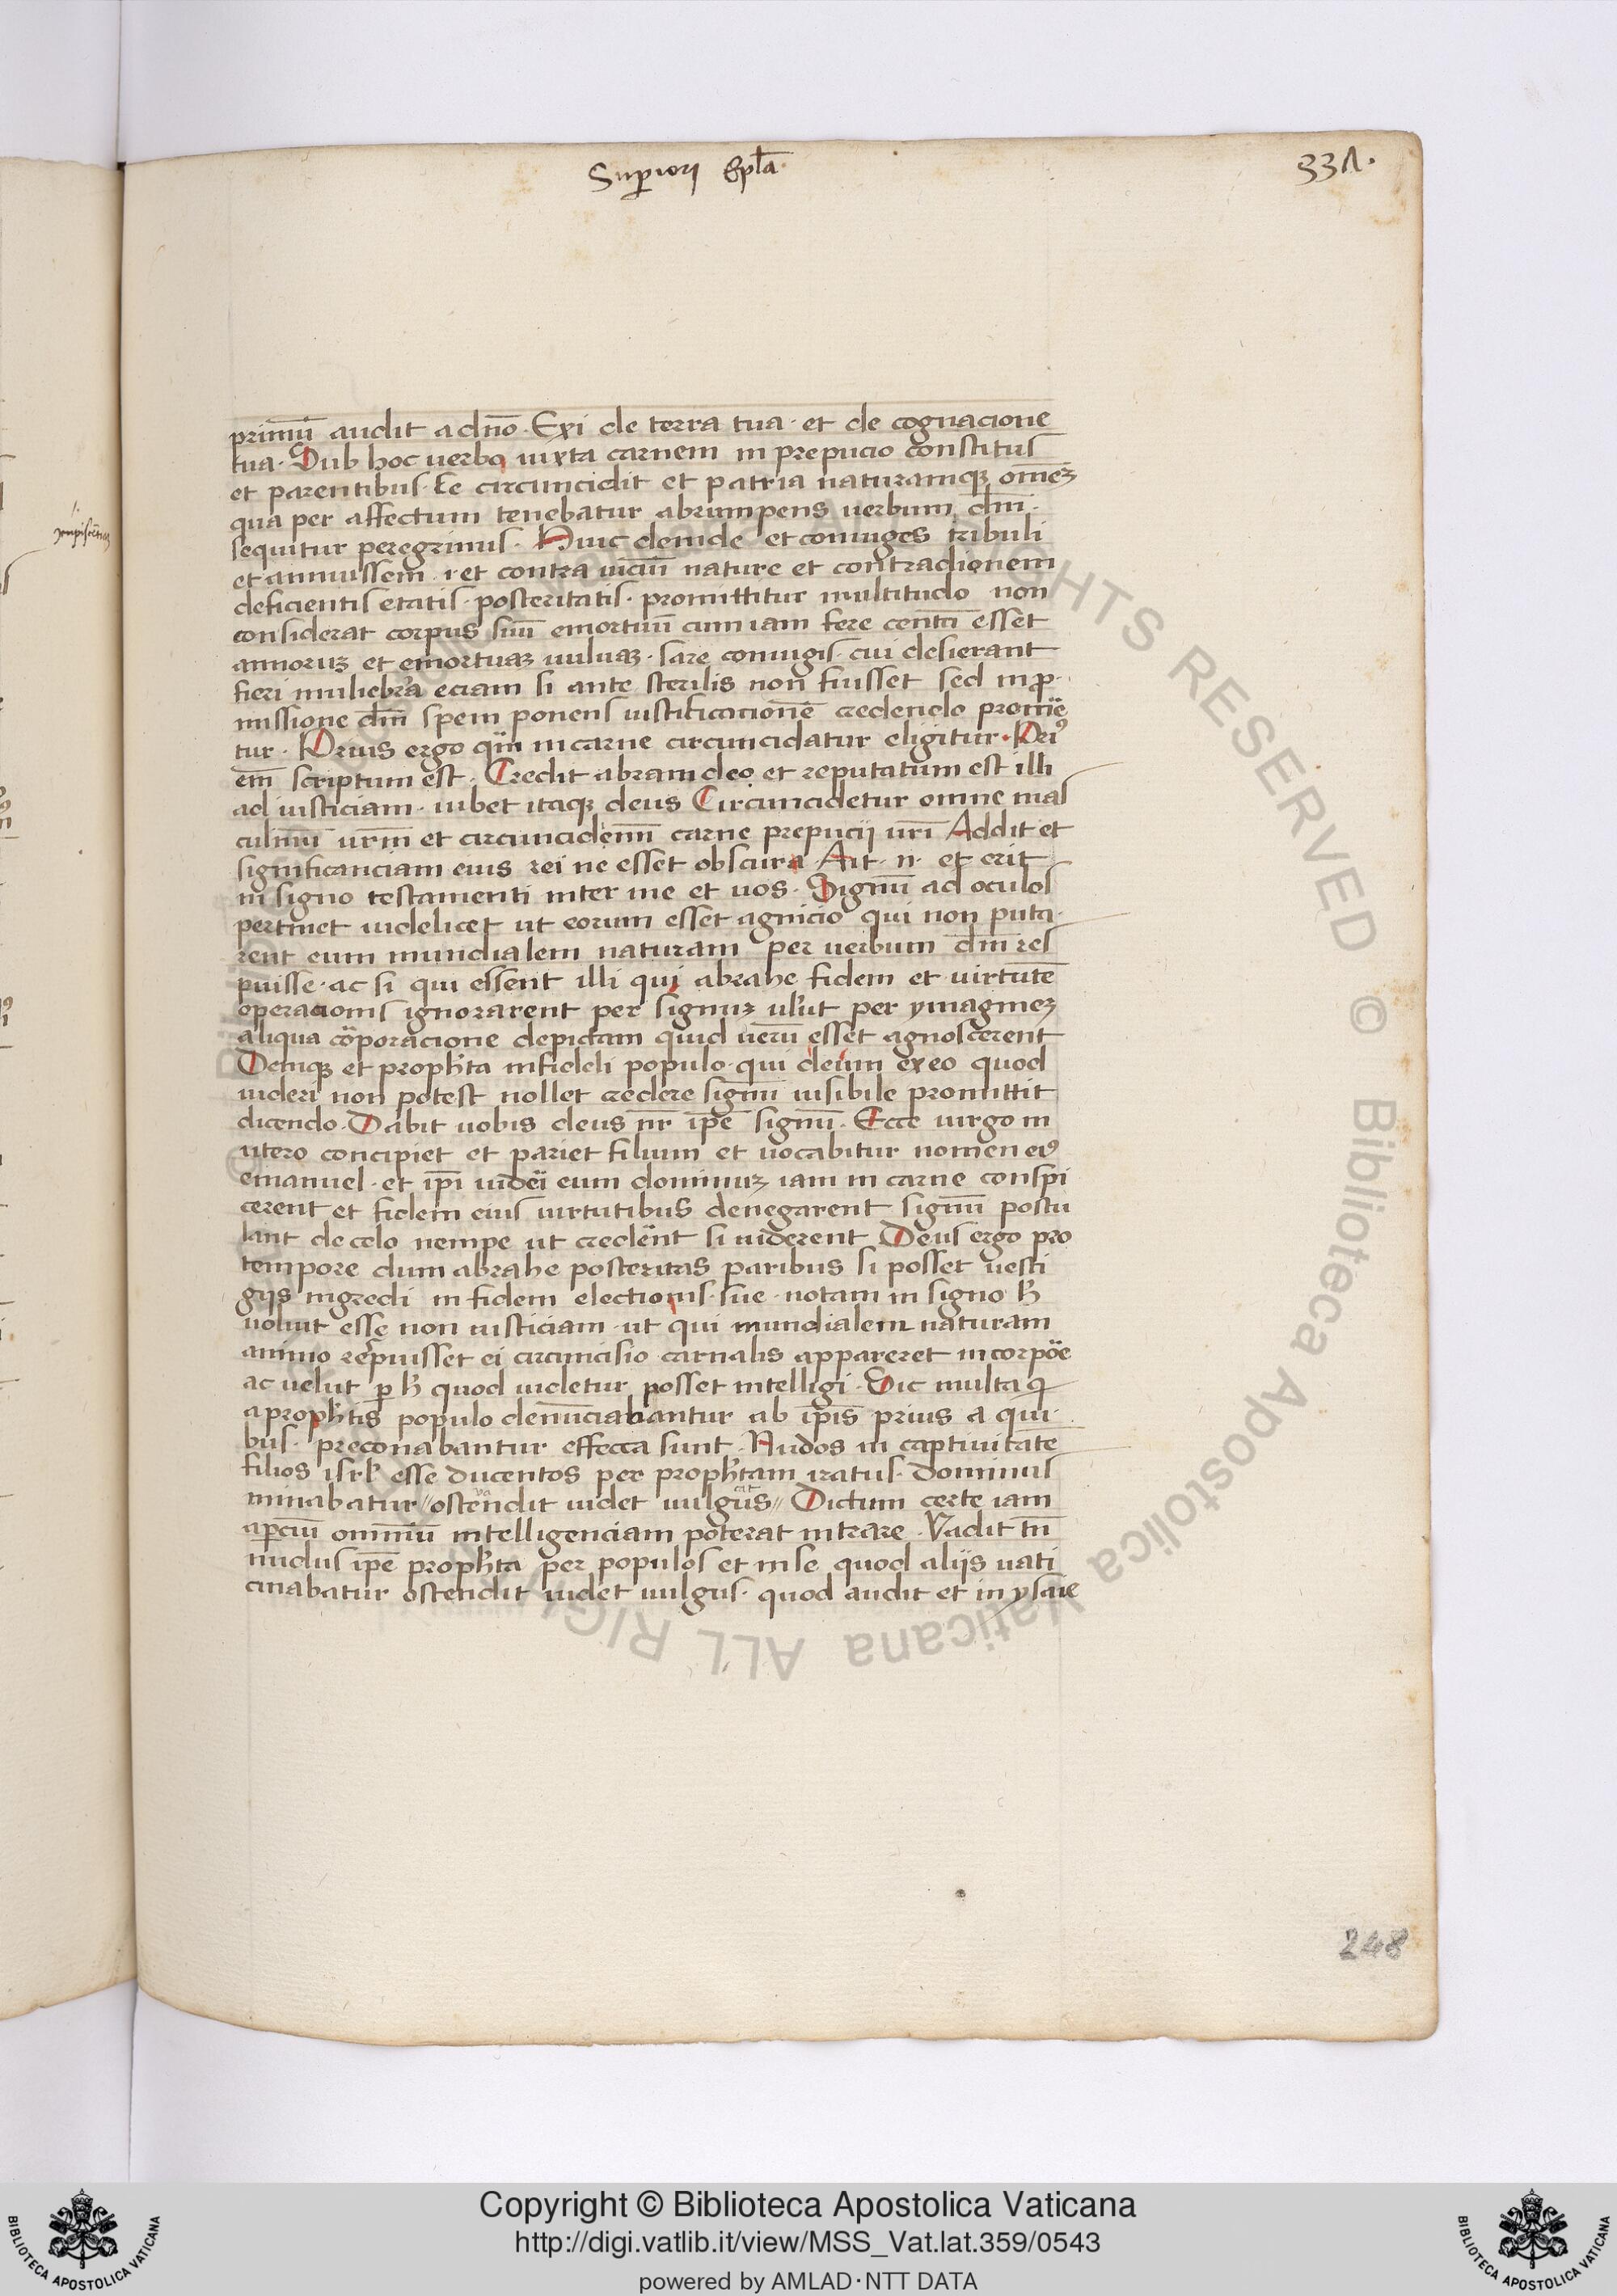 Superiori Epl̄a·
331·
primū audit a dn̄o · Exi de terra tua · et de cognacione
tua · Sub hoc uerbo iuxta carnem in prepucio constitus
et parentibus · se circuncidit et patria naturamqꝫ om̄eꝫ
qua per affectum tenebatur abrumpens uerbum dn̄i ·
sequitur peregrinus · Huic deinde et coniuges tribuli
et annuissem · et contra uiciū nature et contradicionem
deficientis etatis · posteritatis · promittitur multitudo non
considerat corpus suū emortuū cum iam fere centū esset
annoruꝫ et emortuaꝫ uuluaꝫ · sare coniugis · cui desierant
fieri muliebria eciam si ante sterilis non fuisset sed in ꝓ·
missione dn̄i spem ponens iustificacionē credendo prome
tur · Prius ergo qm̄ in carne circuncidatur eligitur · Priꝰ
em̄ scriptum est · Credit abram deo et reputatum est illi
ad iusticiam · iubet itaqꝫ deus Circuncidetur omne mas
culinū ur̄m et circuncidemī carne prepucij ur̄i Addit et
significanciam eius rei ne esset obscura Ait · n · et erit
in signo testamenti inter me et uos · Signū ad oculos
pertinet uidelicet ut eorum esset agnicio qui non puta·
rent eum mundialem naturam per uerbum dn̄i res
puisse · ac si qui essent illi qui abrahe fidem et uirtutē
operacionis ignorarent per signuꝫ ul̄ut per ymagineꝫ
aliqua corporacione depictam quid uerū esset agnoscerent
Deniqꝫ et proph̄ta infideli populo · qui deum ex eo quod
uideri non potest nollet credere signū uisibile promittit
dicendo · Dabit uobis deus nr̄ ip̄e signū · Ecce uirgo in
utero concipiet et pariet filium et uocabitur nomen eiꝰ
emanuel · et ip̄i iudei eum dominuꝫ iam in carne conspi
cerent et fidem eius uirtutibus denegarent signū postu
lant de celo nempe ut crederent si uiderent Deus ergo pro
tempore dum abrahe posteritas paribus si posset uesti
gijs ingredi in fidem electionis · sue · notam in signo h̄
uoluit esse non iusticiam · ut qui mundialem naturam
animo respuisset ei circuncisio carnalis appareret in corpore
ac uelut ꝑ h̄ quod uidetur posset intelligi · Sic multa q̄
a proph̄tis populo denunciabantur ab ip̄is prius a qui·
bus · preconabantur effecta sunt · Nudos in captiuitatē
filios isrl̄ esse ducentos per proph̄tam iratus · dominus
minabatur // ostendit uidet uulgus // Dictum certe iam
aꝑciū omniū intelligenciam poterat intrare · Vadit tn̄
nudus ip̄e proph̄ta per populos et in se quod alijs uati
cinabatur ostendit uidet uulgus · quod audit et in ysaie
248
Copyright © Biblioteca Apostolica Vaticana
http://digi.vatlib.it/view/MSS_Vat.lat.359/0543
powered by AMLAD·NTT DATA